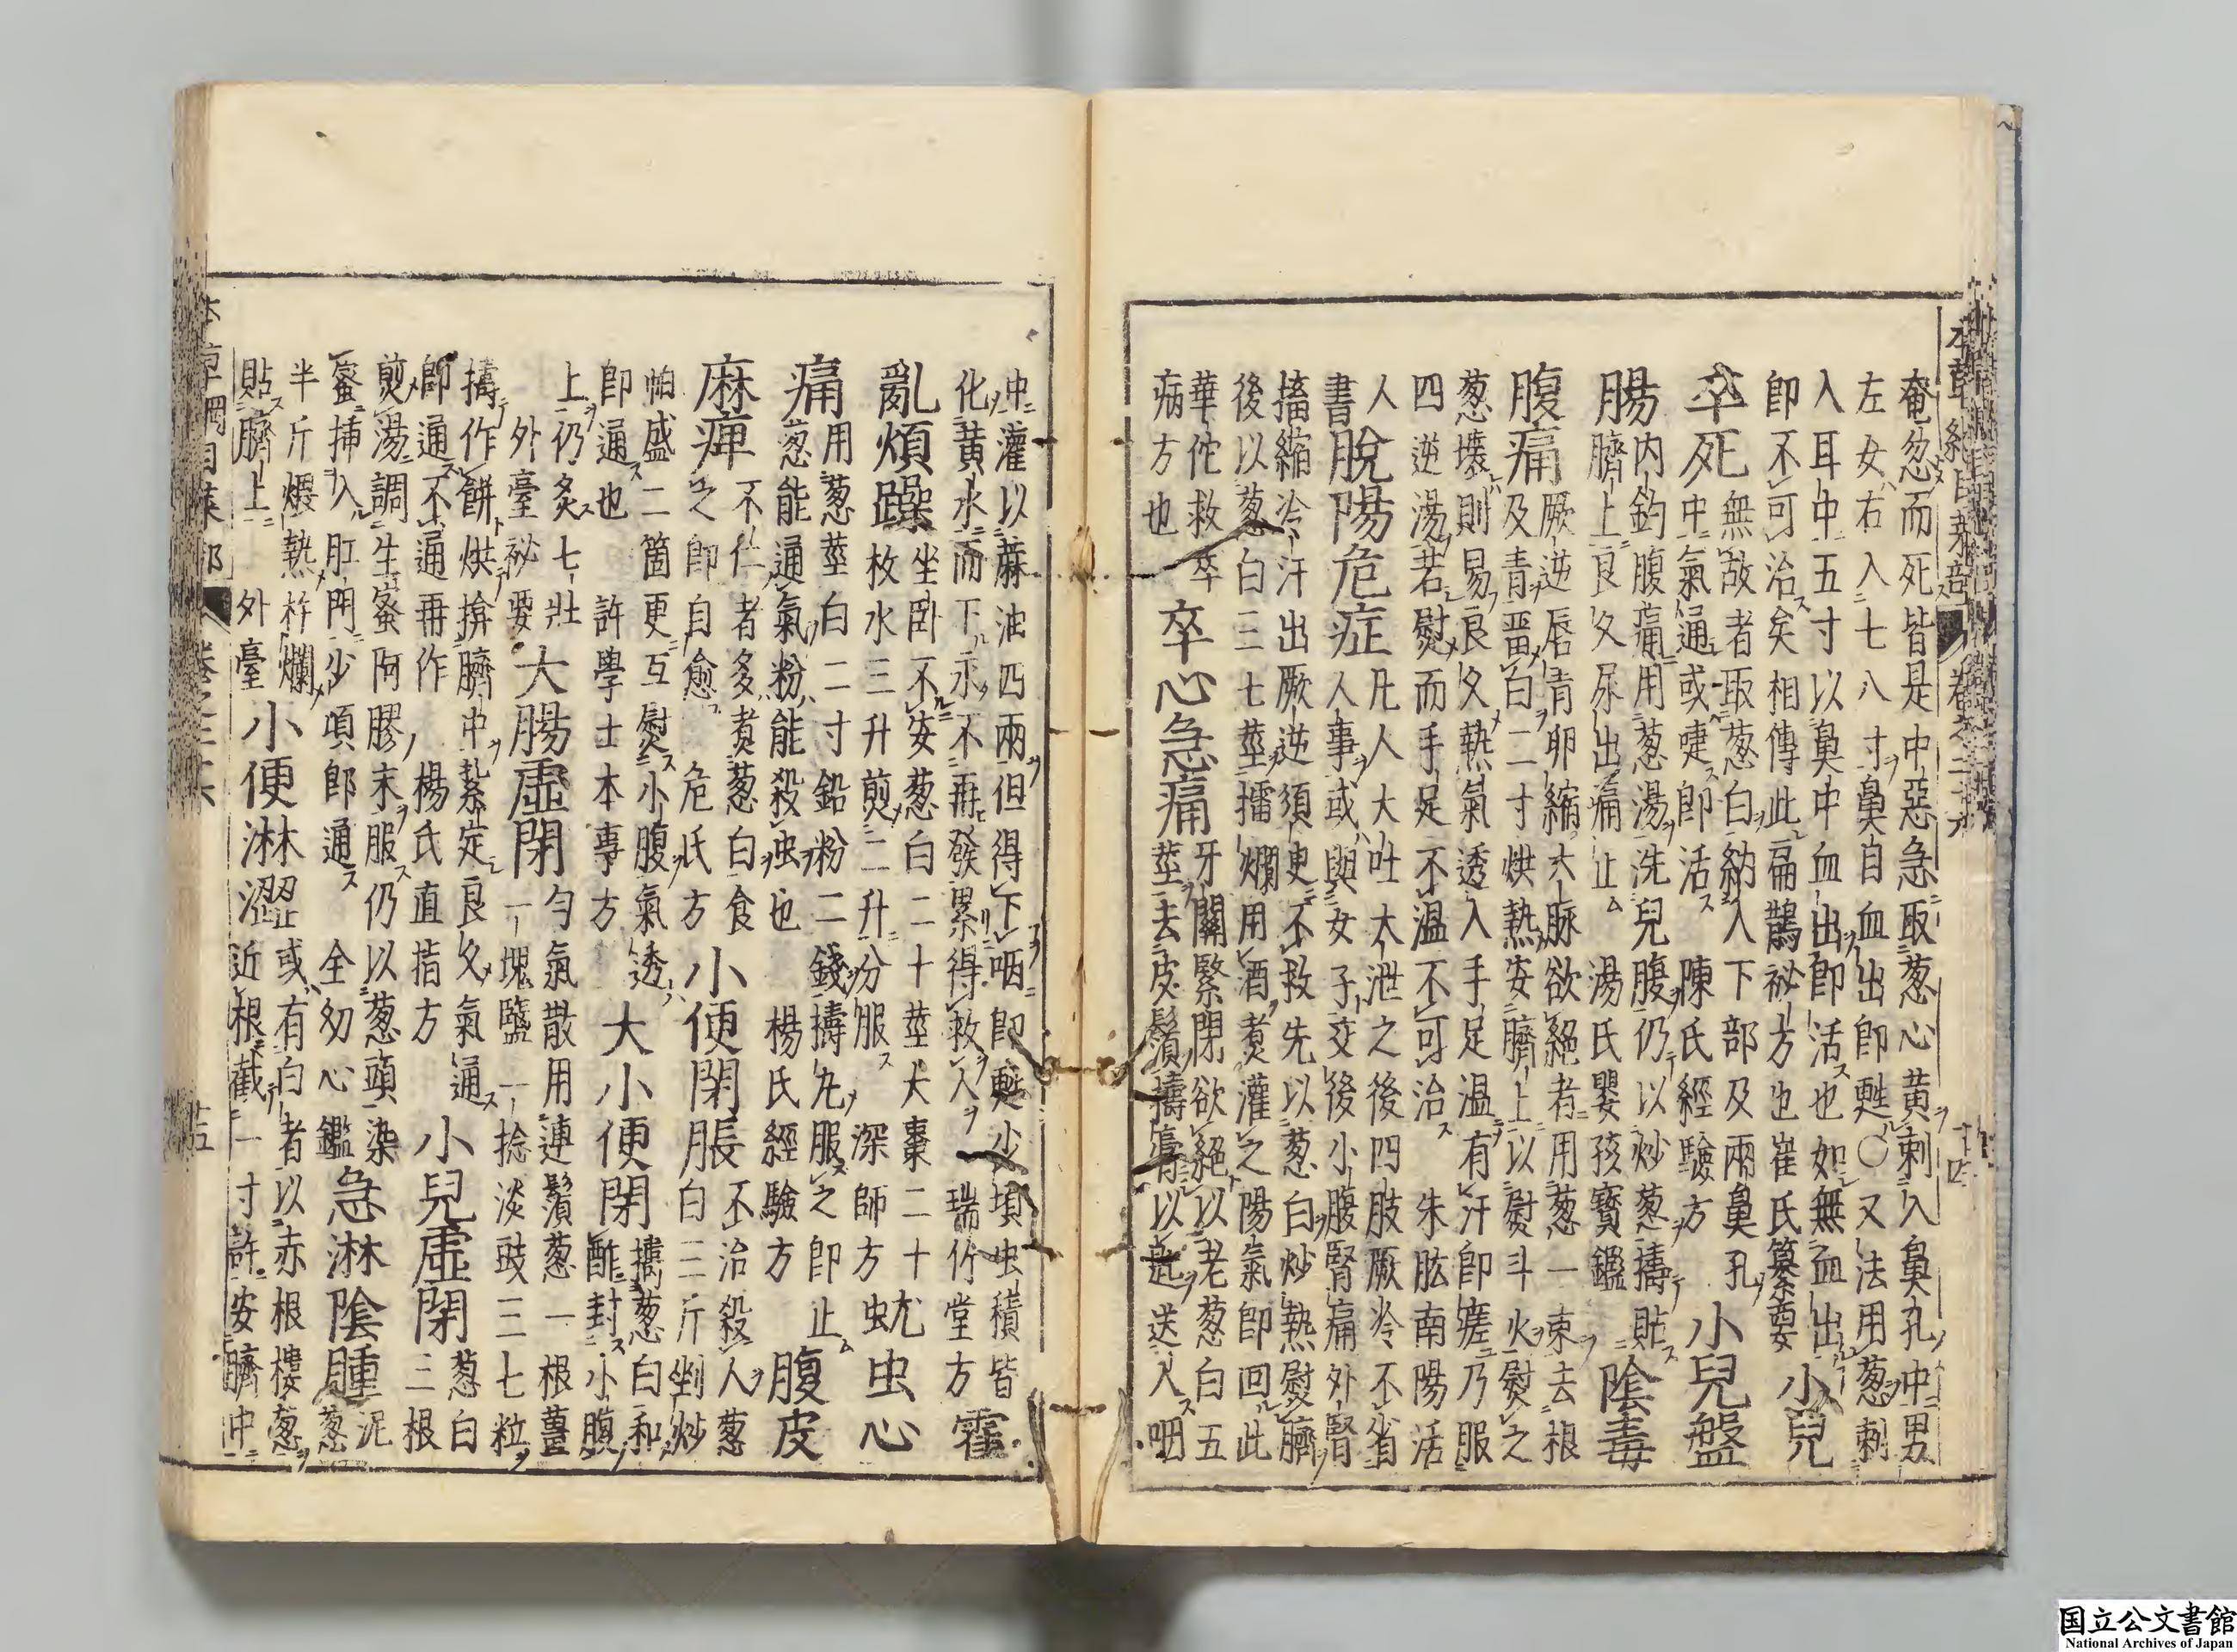 本草綱目菜部 卷之二十六 十四
奄忽而死皆是中惡急取葱心黃刺入鼻孔中男
左女右入七八寸鼻目血出即甦〇又法用葱刺
入耳中五寸以鼻中血出即活也如無血出
即不可治矣相傳此扁鵲祕方也崔氏纂要 小兒
卒死 無故者取葱白納入下部及兩鼻孔
中氣通或嚏即活 陳氏經驗方 小兒盤
腸 内釣腹痛用葱湯洗兒腹仍以炒葱擣貼
臍上良久尿出痛止 湯氏嬰孩寶鑑 陰毒
腹痛 厥逆唇青卵縮六脉欲絕者用葱一束去根
及青畱白二寸烘熱安臍上以熨斗火熨之
葱壞則易良久熱氣透入手足温有汗即瘥乃服
四逆湯若熨而手足不温不可治 朱肱南陽活
人
書 脫陽危症 凡人大吐大泄之後四肢厥冷不省
人事或與女子交後小腹腎痛外腎
搐縮冷汗出厥逆須臾不救先以葱白炒熱熨臍
後以葱白三七莖擂爛用酒煮灌之陽氣即回此
華佗救卒
病方也 卒心急痛 牙關緊閉欲絕以老葱白五
莖去皮鬚擣膏以匙送入咽
中灌以蔴油四兩但得下咽即甦少頃虫積皆
化黃水而下永不再發累得救人 瑞竹堂方 霍
亂煩躁 坐卧不安葱白二十莖大棗二十
枚水三升煎二升分服 深師方 蚘虫心
痛 用葱莖白二寸鉛粉二錢擣丸服之即止
葱能通氣粉能殺虫也 楊氏經驗方 腹皮
麻痺 不仁者多煑葱白食
之即自愈 危氏方 小便閉脹 不治殺人葱
白三斤剉炒
帕盛二箇更互熨小腹氣透
即通也 許學士本事方 大小便閉 擣葱白和
酢封小腹
上仍灸七壯
外臺祕要 大腸虛閉 匀氣散用連鬚葱一根薑
一塊鹽一捻淡豉三七粒
擣作餅烘掩臍中紮定良久氣通
即通不通再作 楊氏直指方 小兒虛閉 葱白
三根
煎湯調生蜜阿膠末服仍以葱頭染
蜜插入肛門少頃即通 全幼心鑑 急淋陰腫 泥
葱
半斤煨熱杵爛
貼臍上 外臺 小便淋澀 或有白者以赤根樓葱
近根截一寸許安臍中
本草綱目菜部 卷之二十六 十五
国立公文書館
National Archives of Japan